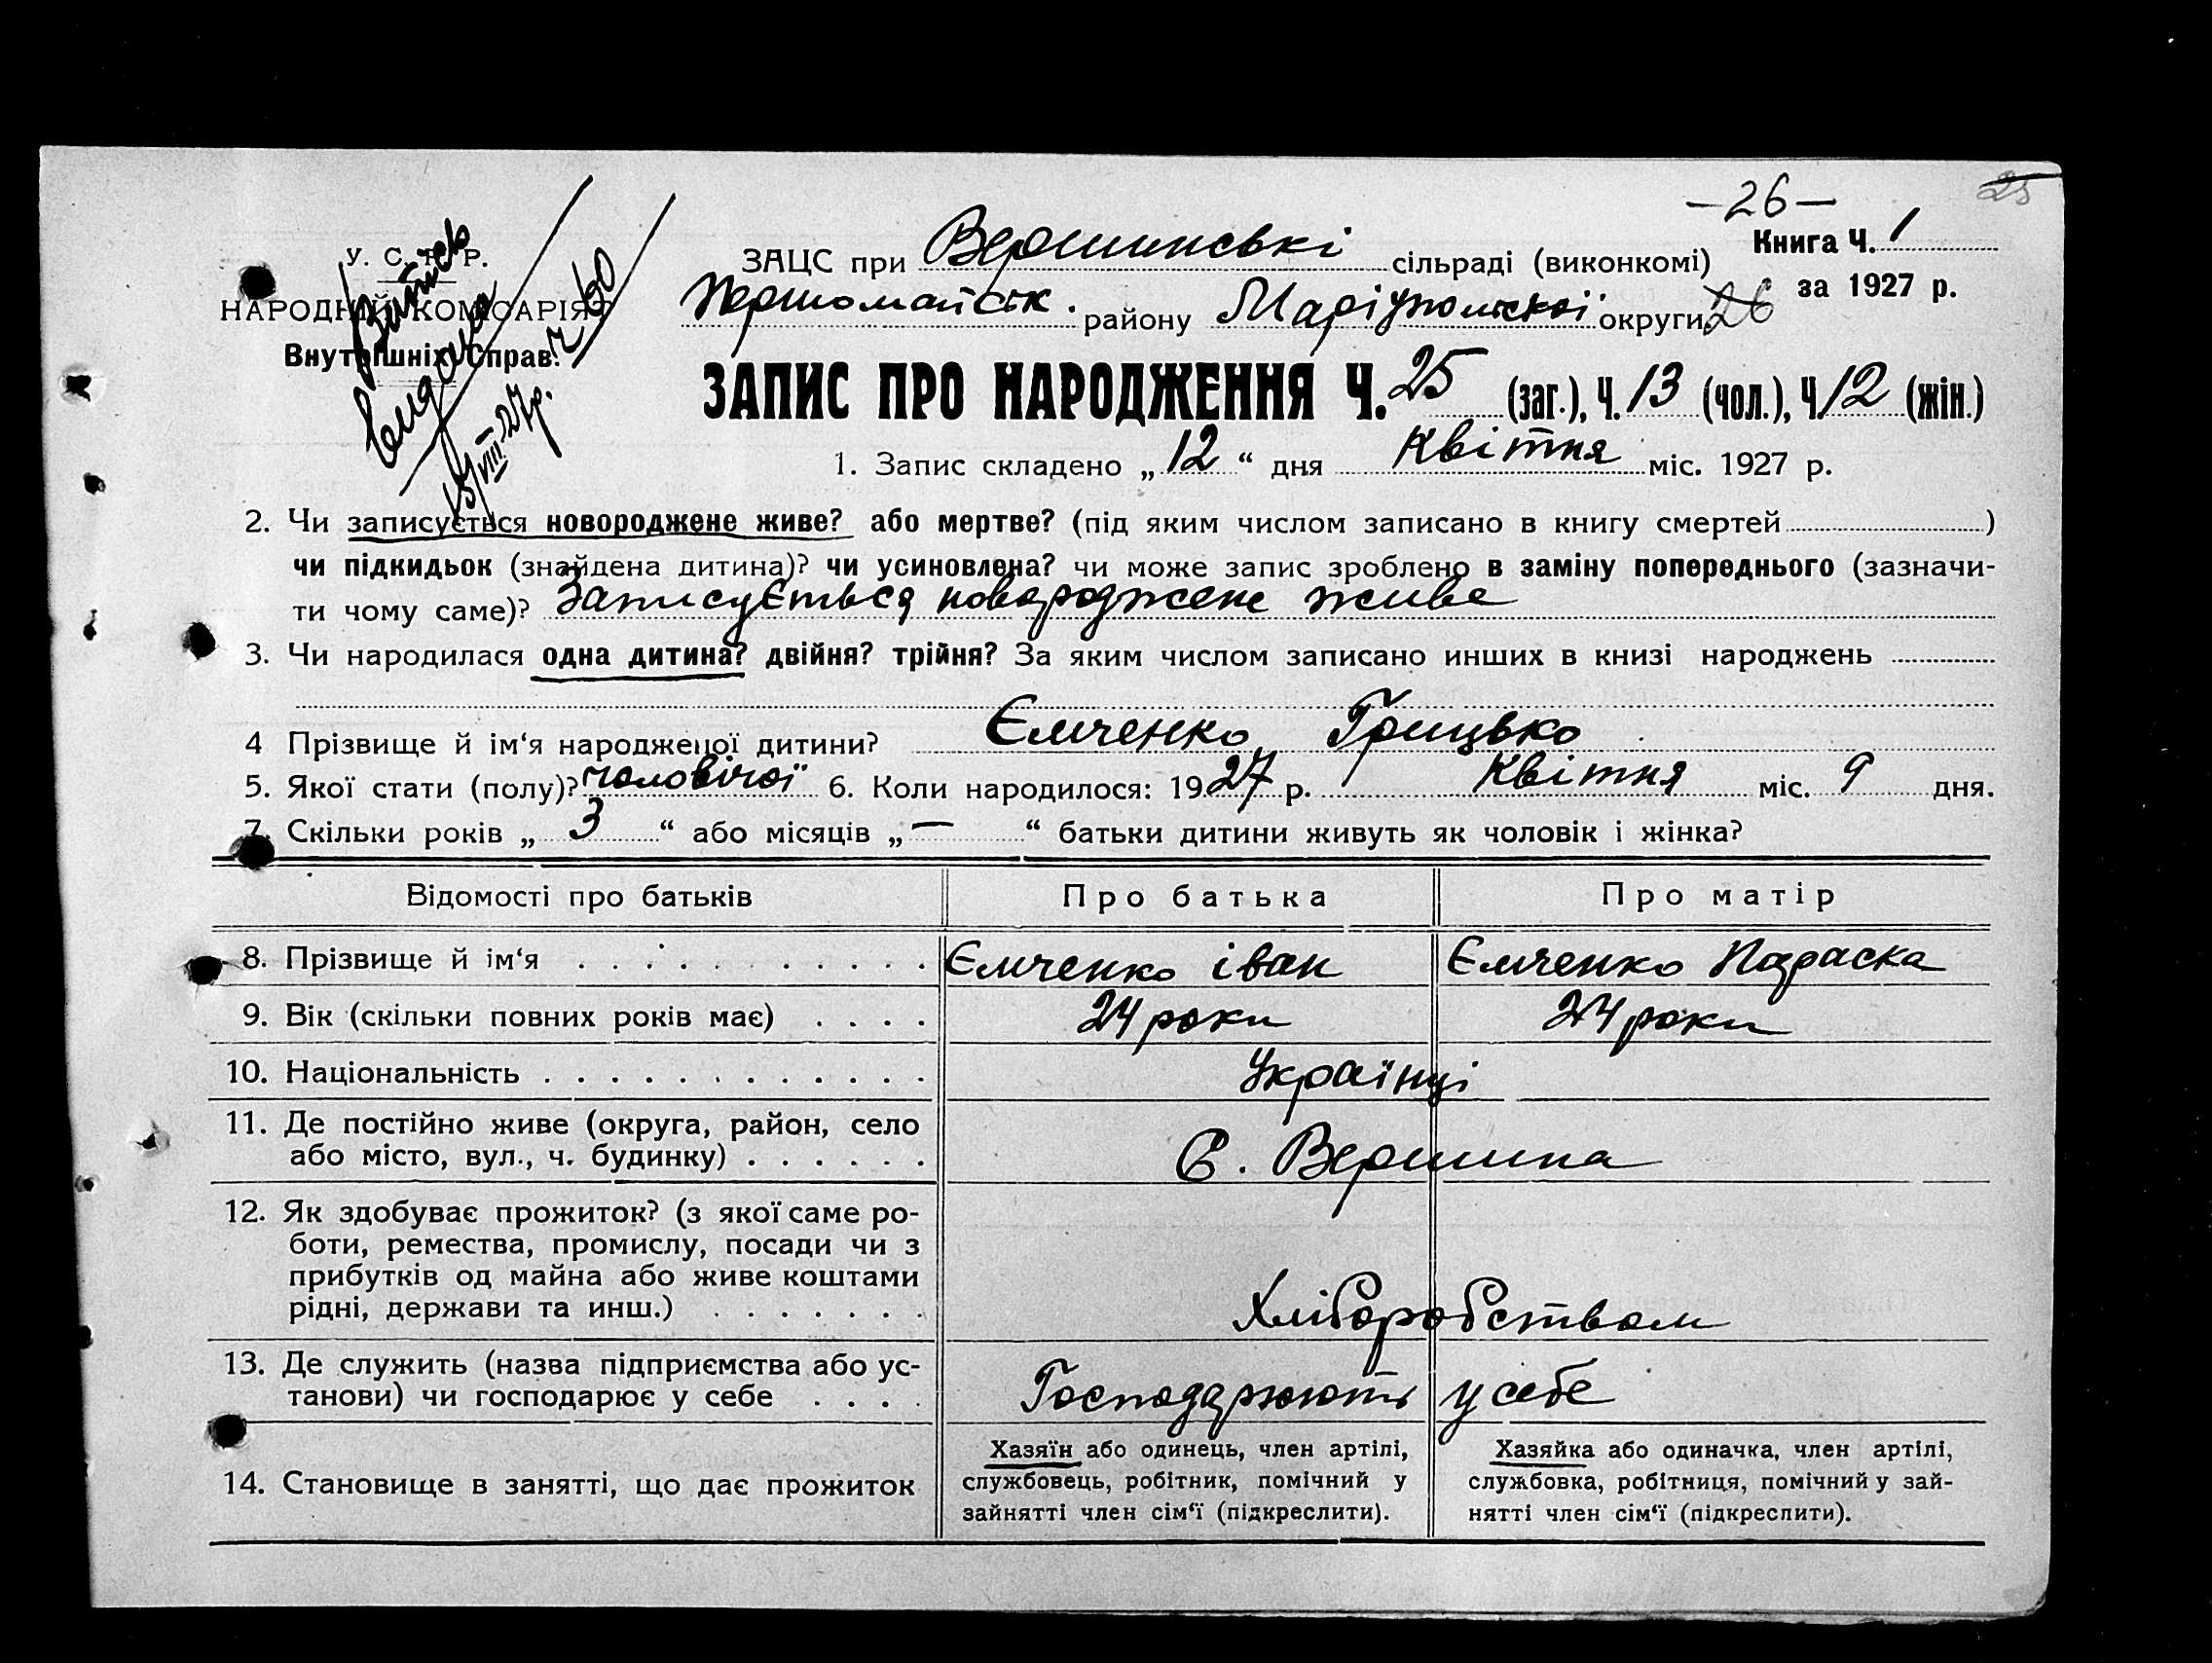 -26-
25
У. С. Р. Р.
НАРОДНІЙ КОМІСАРІЯТ
Внутрішніх Справ.
Витяг
видано
15/VIII-27р. Ч 60
ЗАЦС при Вершинські сільраді (виконкомі) Книга Ч. 1
Першомайськ. району Маріупольської округи 26 за 1927 р.
ЗАПИС ПРО НАРОДЖЕННЯ Ч. 25 (заг.), Ч. 13 (чол.), Ч. 12 (жін.)
1. Запис складено „ 12 “ дня Квітня міс. 1927 р.
2. Чи записується новороджене живе? або мертве? (під яким числом записано в книгу смертей )
чи підкидьок (знайдена дитина)? чи усиновлена? чи може запис зроблено в заміну попереднього (зазначи-
ти чому саме)? Записуєтьсяq новароджене живе
3. Чи народилася одна дитина? двійня? трійня? За яким числом записано инших в книзі народжень
4 Прізвище й ім‘я народженої дитини? Ємченко Грицько
5. Якої стати (полу)? чоловічої 6. Коли народилося: 1927 р. Квітня міс. 9 дня.
7. Скільки років „ 3 “ або місяців „ — “ батьки дитини живуть як чоловік і жінка?
Відомості про батьків Про батька Про матір
8. Прізвище й ім‘я Ємченко іван Ємченко Параска
9. Вік (скільки повних років має) 24 роки 24 роки
10. Національність Українці
11. Де постійно живе (округа, район, село
або місто, вул., ч. будинку) С. Вершина
12. Як здобуває прожиток? (з якої саме ро-
боти, ремества, промислу, посади чи з
прибутків од майна або живе коштами
рідні, держави та инш.) Хліборобством
13. Де служить (назва підприємства або ус-
танови) чи господарює у себе Господарюють у себе
14. Становище в занятті, що дає прожиток
Хазяїн або одинець, член артілі,
службовець, робітник, помічний у
зайнятті член сім‘ї (підкреслити).
Хазяйка або одиначка, член артілі,
службовка, робітниця, помічний у зай-
нятті член сім‘ї (підкреслити).